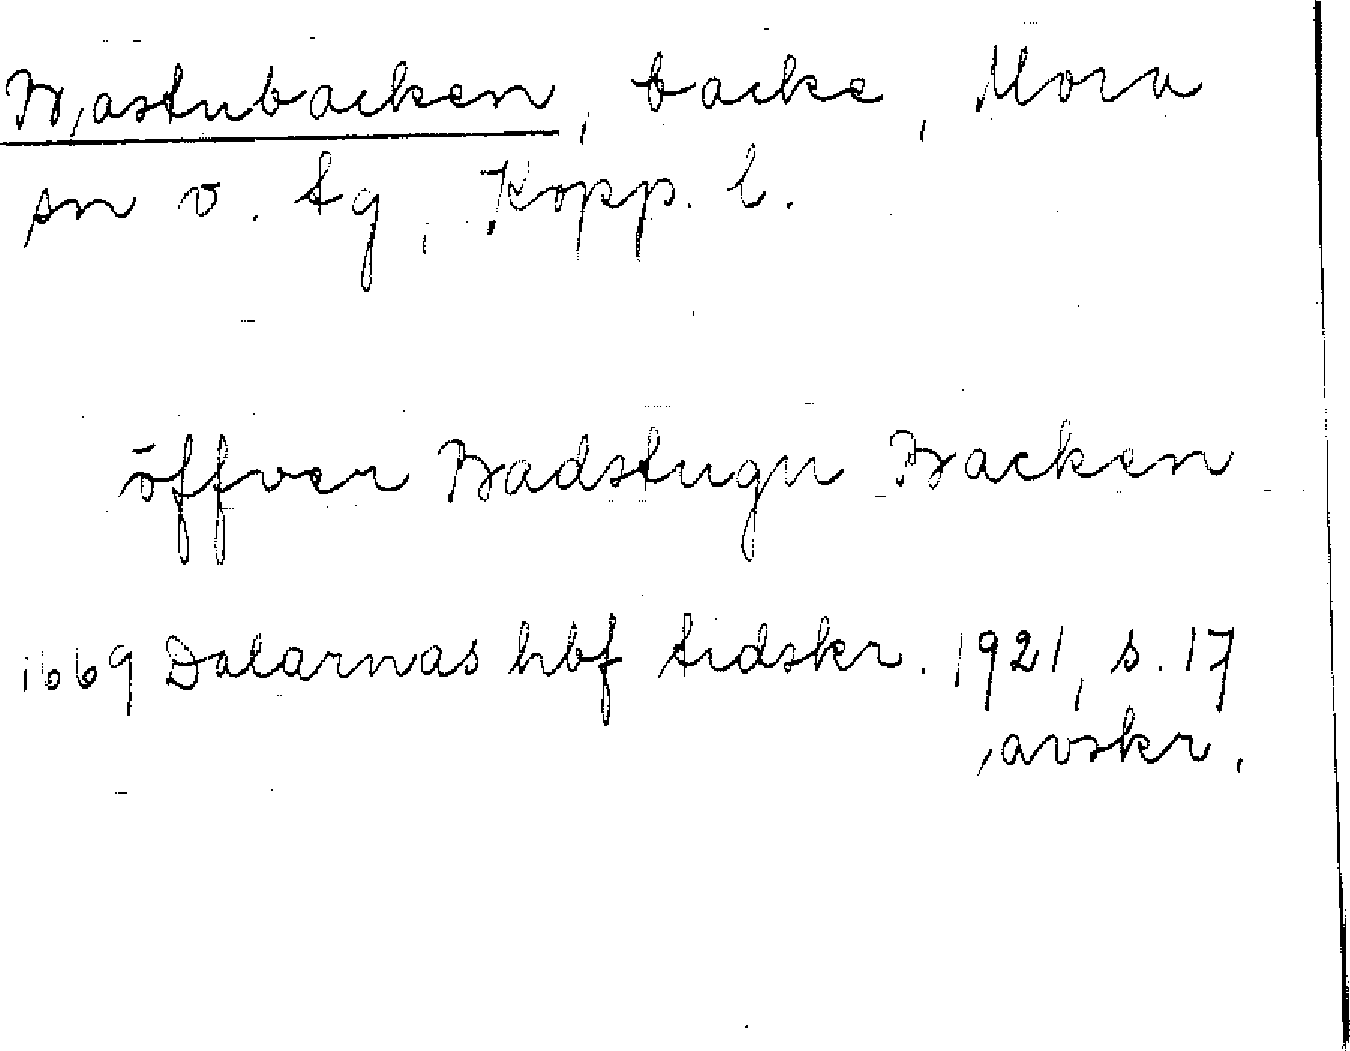 Bastubacken, backe, Mora
sn o. tg, Kopp. l.
öffver Badstugu Backen
1669 Dalarnas hbf tidskr. 1921, s. 17
avskr.